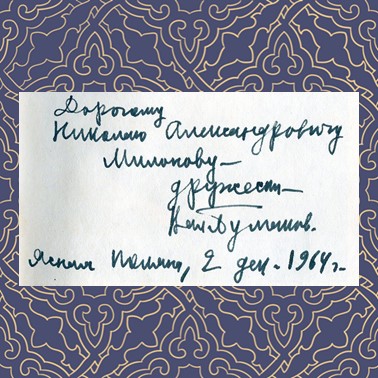 Дорогому
Николаю Александровичу
Милонову —
дружески —
Вал. Булгаков.
Ясная Поляна, 2 дек. 1964 г.